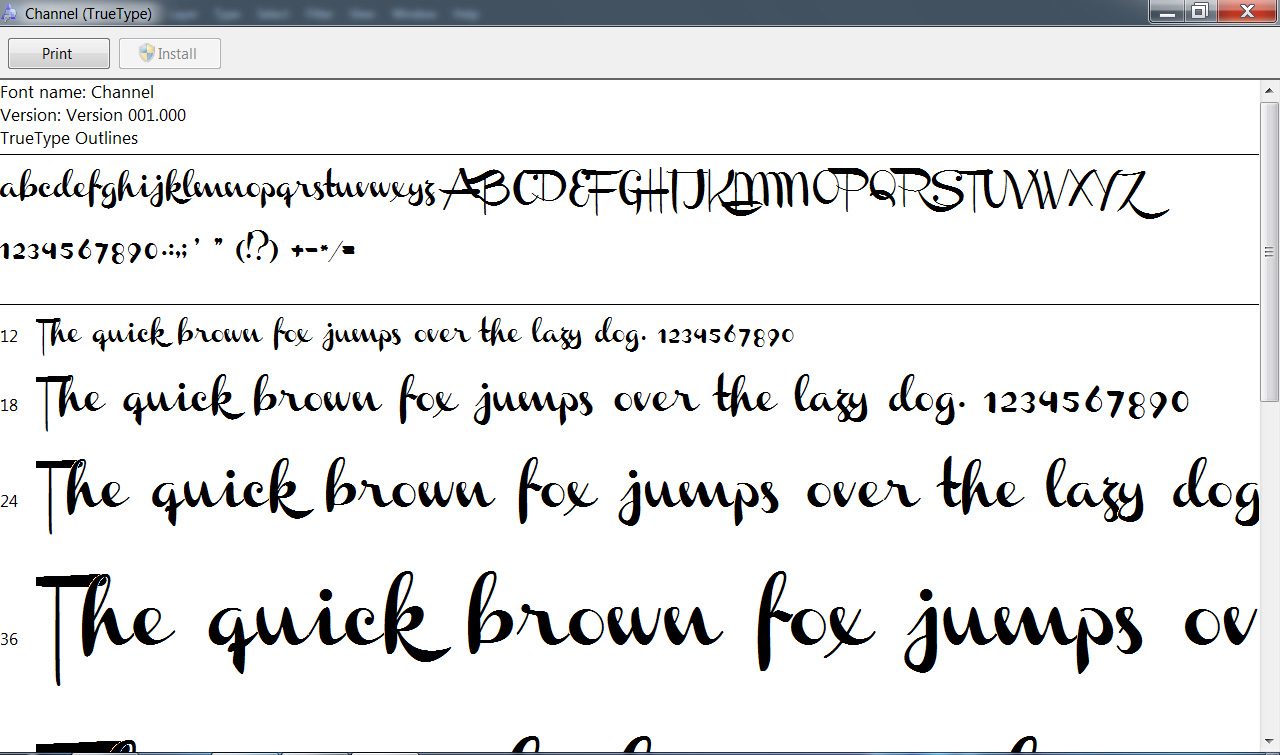 Channel (TrueType)
Layer Type Select Filter View Window Help
Print Install
Font name: Channel
Version: Version 001.000
TrueType Outlines
abcdefghijklmnopqrstuvwxyz ABCDEFGHIJKLMNOPQRSTUVWXYZ
1234567890.:,; ' " (!?) +-*/=
12 The quick brown fox jumps over the lazy dog. 1234567890
18 The quick brown fox jumps over the lazy dog. 1234567890
24 The quick brown fox jumps over the lazy dog
36 The quick brown fox jumps ov